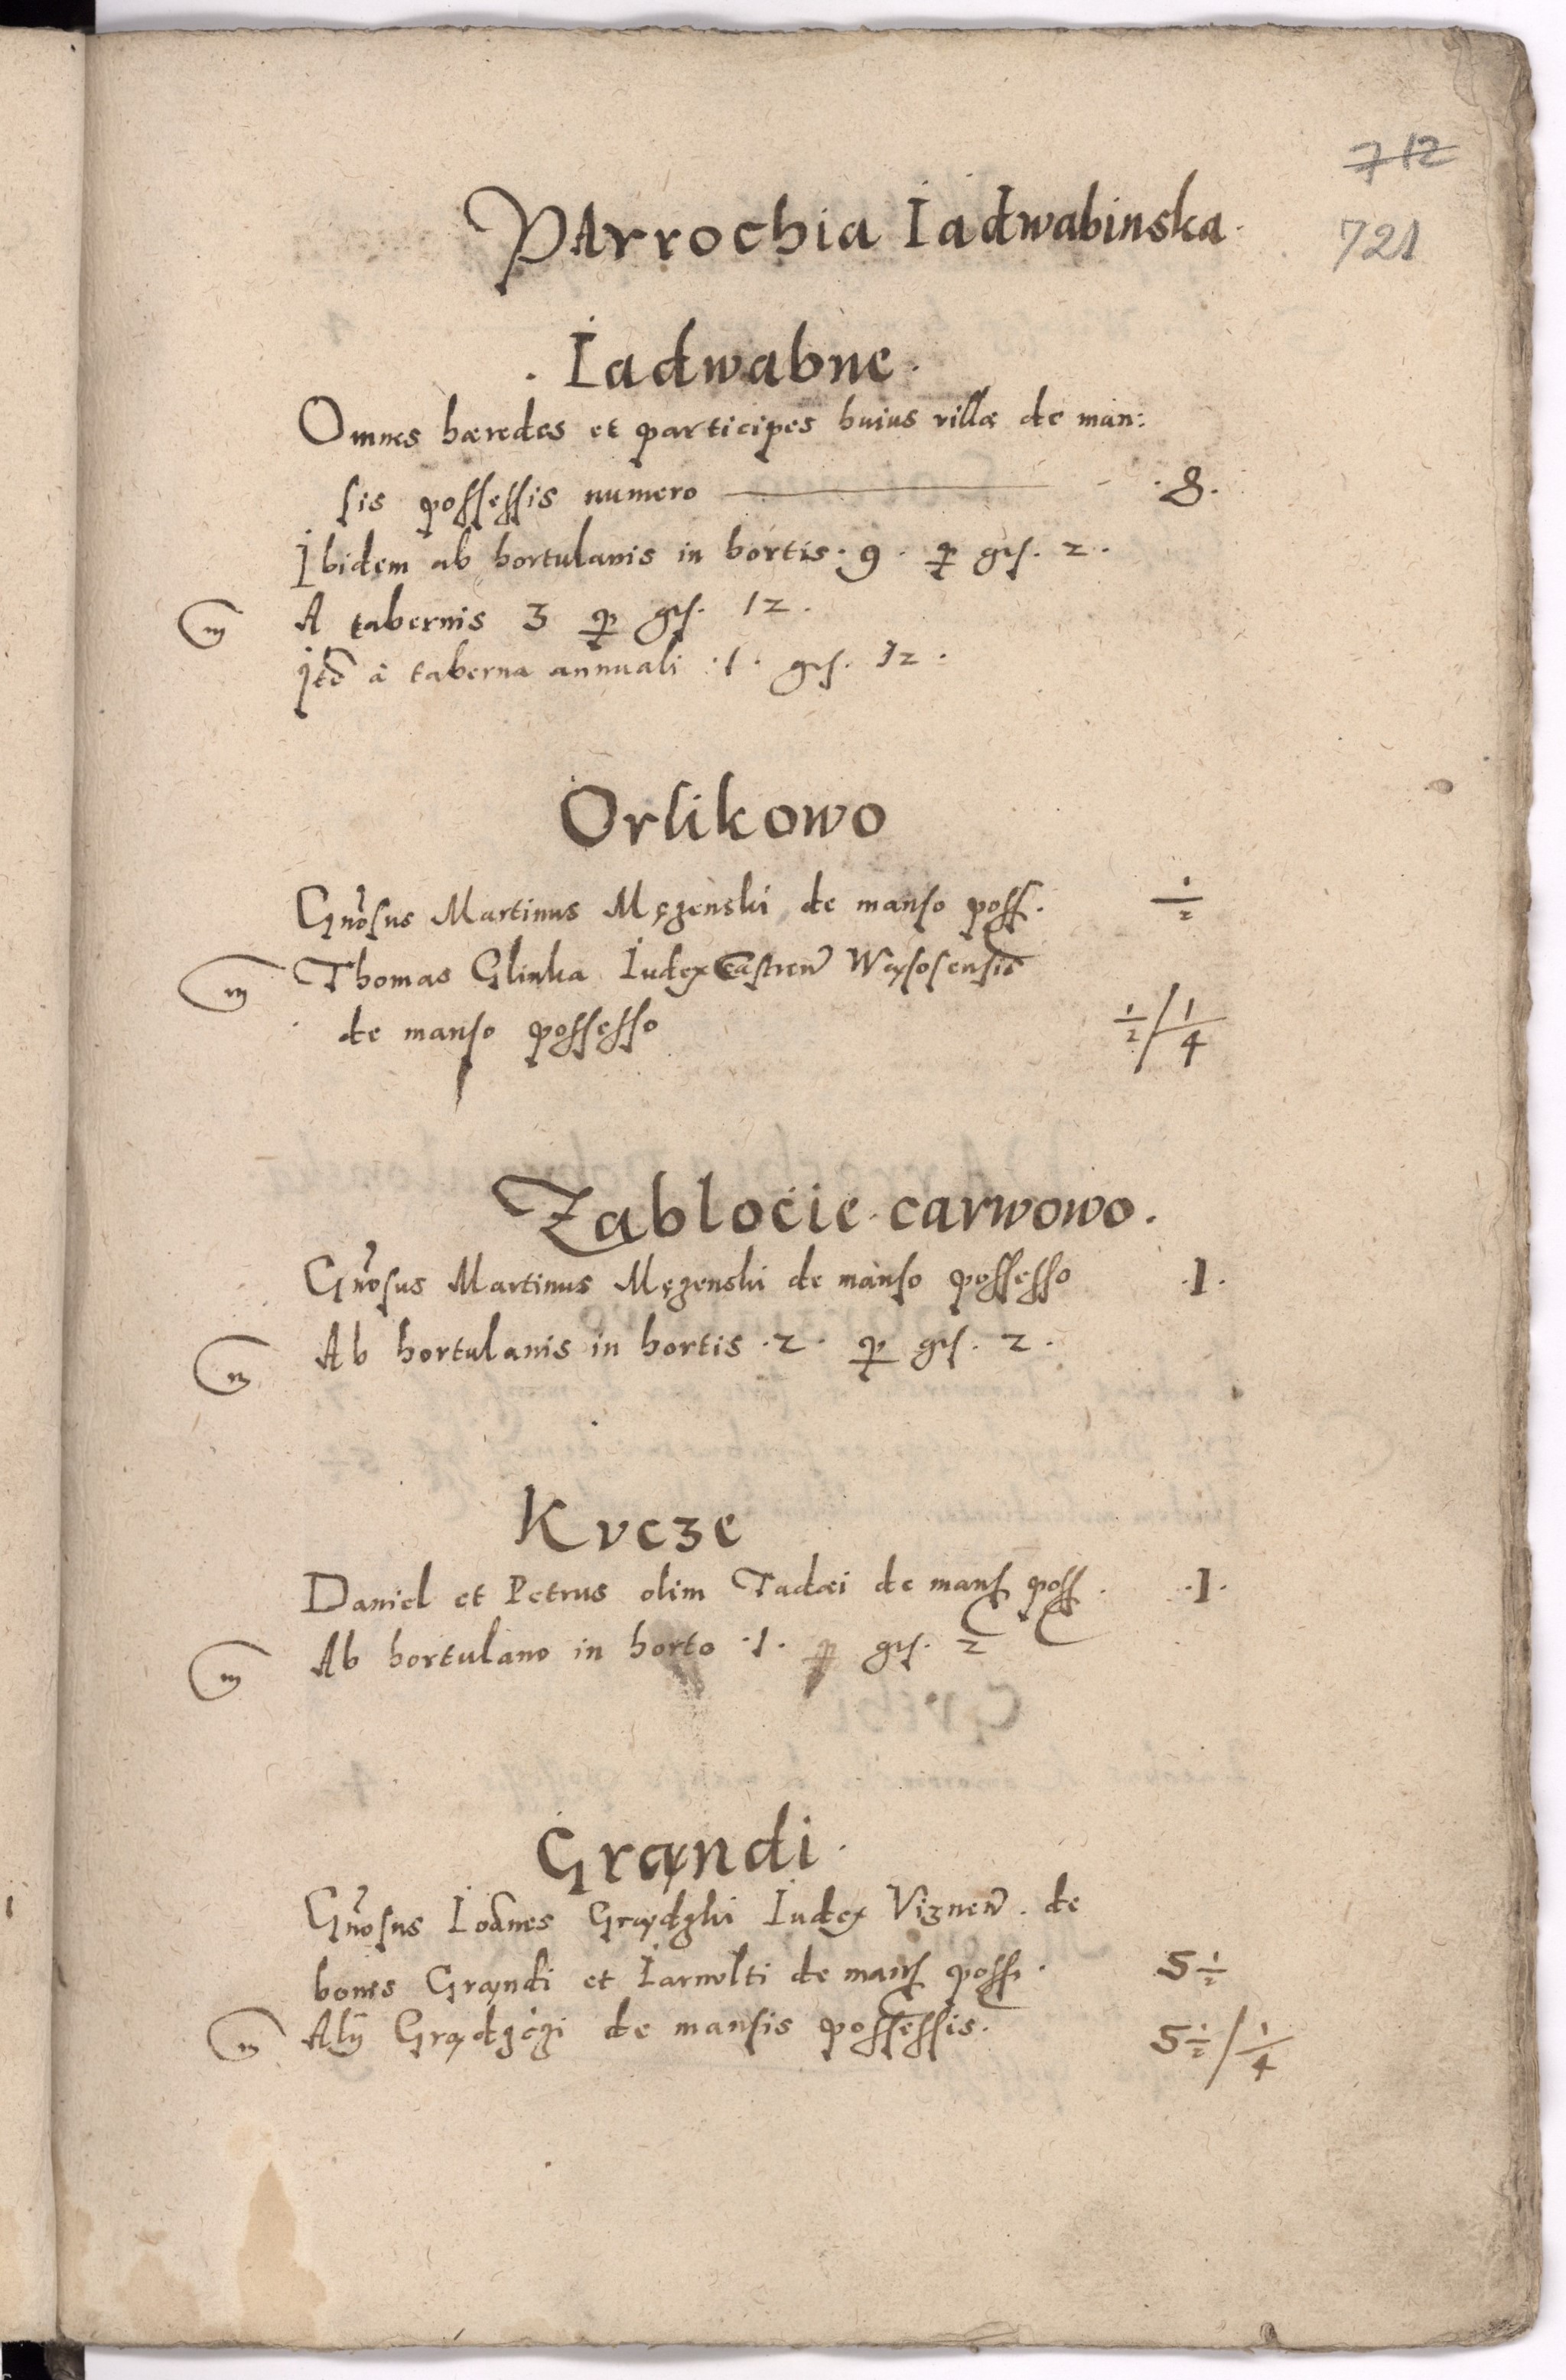 712
721
PArrochia Iadwabinska.
. Iadwabne .
Omnes hæredes et participes huius villæ de man:
sis possessis numero ——— .8.
Ibidem ab hortulanis in hortis . 9 . p grs. 2 .
m A tabernis 3 p grs. 12 .
Itē à taberna annuali . 1 . grs. 12 .
Orlikowo
Gn̄osus Martinus Mężenski de manso poss. 1/2
m Thomas Glinka Iudex Castren̄ Wąsosensis
de manso possesso 1/2 / 1/4
Zablocie carwowo .
Gn̄osus Martinus Mężenski de manso possesso . 1 .
m Ab hortulanis in hortis . 2 . p grs. 2 .
Kvcze
Daniel et Petrus olim Tadæi de mans poss . . 1 .
m Ab hortulano in horto . 1 . p grs. 2
Grąndi .
Gn̄osus Ioānes Grądzki Iudex Viznen̄ . de
bonis Grąndi et Iarnolti de mans poss . 5 1/2
m Alij Grądzċzi de mansis possessis . 5 1/2 / 1/4